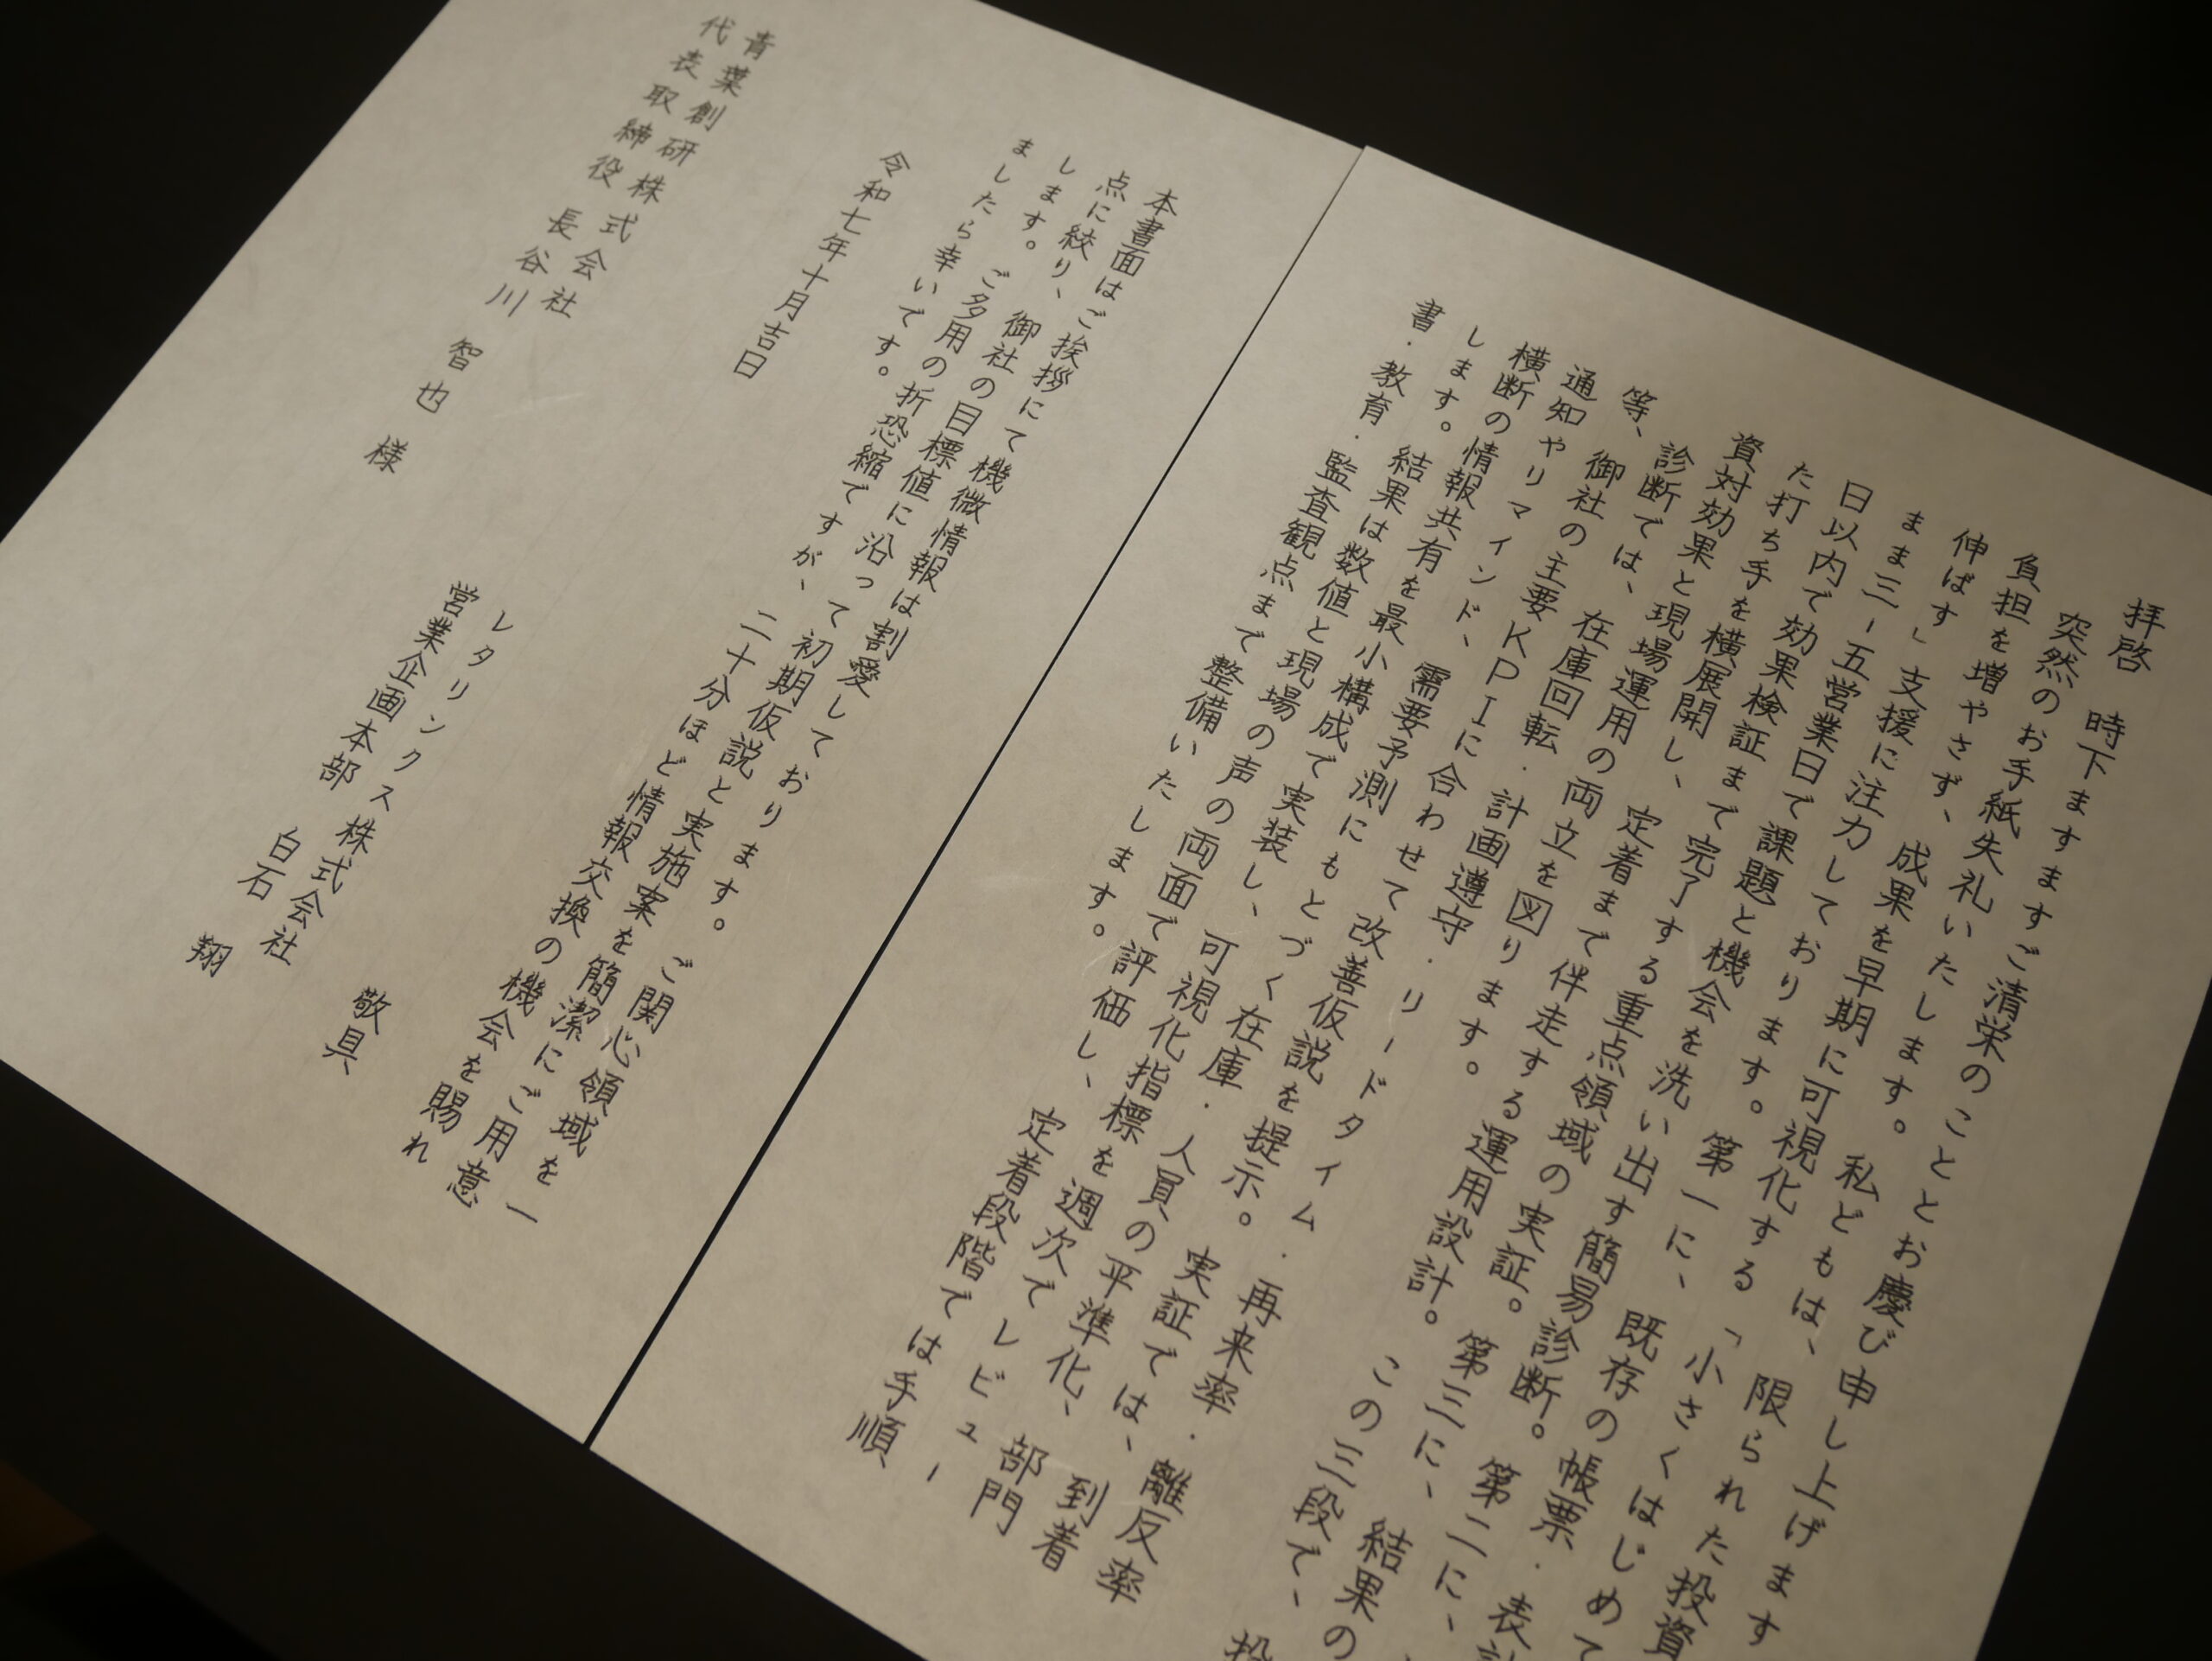 拝啓 時下ますますご清栄のこととお慶び申し上げます
突然のお手紙失礼いたします。私どもは、限られた投資
負担を増やさず、成果を早期に可視化する「小さくはじめて
伸ばす」支援に注力しております。第一に、既存の帳票・表
まま三ー五営業日で課題と機会を洗い出す簡易診断。第二に、
日以内で効果検証まで完了する重点領域の実証。第三に、結果の
た打ち手を横展開し、定着まで伴走する運用設計。この三段で、投
資対効果と現場運用の両立を図ります。
診断では、在庫回転・計画遵守・リードタイム・再来率・離反率
等、御社の主要KPIに合わせて改善仮説を提示。実証では、到着
通知やリマインド、需要予測にもとづく在庫・人員の平準化、部門
横断の情報共有を最小構成で実装し、可視化指標を週次でレビュー
します。結果は数値と現場の声の両面で評価し、定着段階では手順
書・教育・監査観点まで整備いたします。
本書面はご挨拶にて機微情報は割愛しております。ご関心領域を一
点に絞り、御社の目標値に沿って初期仮説と実施案を簡潔にご用意
します。ご多用の折恐縮ですが、二十分ほど情報交換の機会を賜れ
ましたら幸いです。
敬具
令和七年十月吉日
レタリンクス株式会社
営業企画本部 白石 翔
青葉創研株式会社
代表取締役 長谷川 智也 様